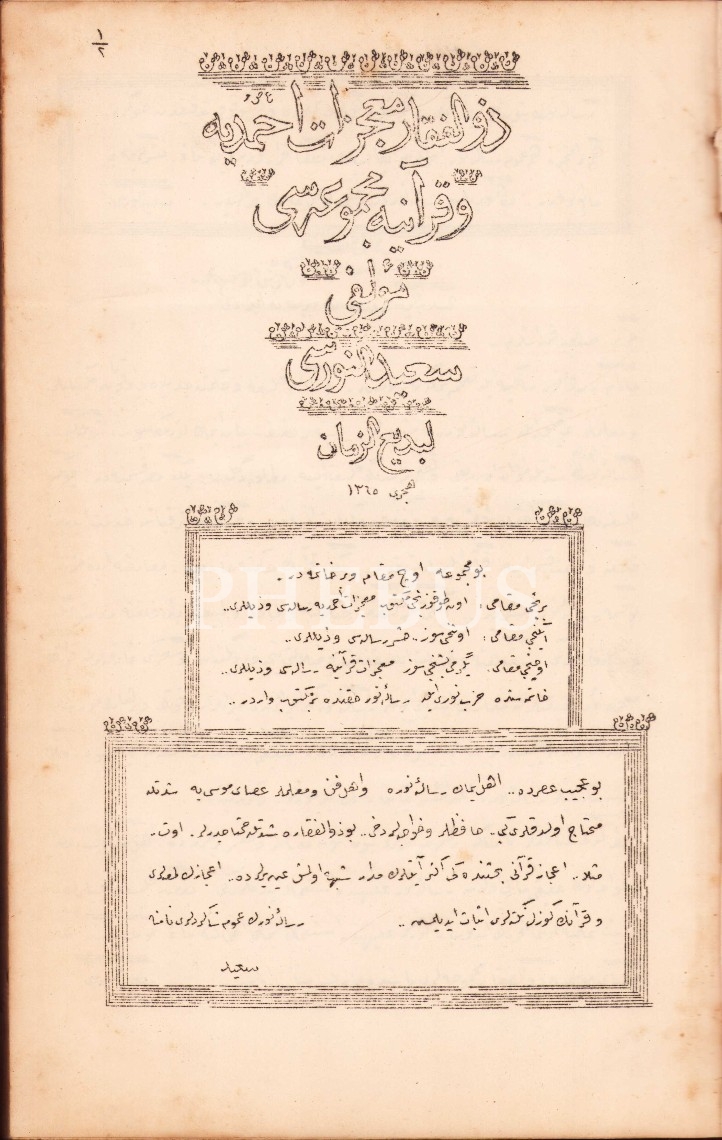 ١
٢
ذوالفقار معجزات احمديه
و قرآنيه مجموعه‌سى
مؤلفى
سعيد النورسى
بديع الزمان
هجرى ١٣٦٥
PHEBUS
بو مجموعه اوچ مقام و بر خاتمه در.
برنجى مقامى: اون طقوزنجى مكتوب معجزات احمديه رساله‌سى و ذيللرى..
ايكنجى مقامى: اوننجى سوز.. حشر رساله‌سى و ذيللرى..
اوچنجى مقامى: يگرمى بشنجى سوز معجزات قرآنيه رساله‌سى و ذيللرى..
خاتمه‌سنده حزب نورى ايله رسالۀ نور حقنده بر مكتوب واردر..
بو عجيب عصرده.. اهل ايمان رسالۀ نوره و اهل فن و معلملر عصاى موسى يه شدتله
محتاج اولدقلرى كبى.. حافظلر و خواجه‌لر دخى.. بو ذوالفقاره شدتله محتاجدرلر. اوت..
مثلا.. اعجاز قرآنى بحثنده كى اكثر آيتلرك مدار شبهه اولمش عين يرلرده.. اعجازك لمعه‌لرى
و قرآنك گوزل نكته‌لرى اثبات ايديلمش..
رسالۀ نورك عموم شاكردلرى نامنه
سعيد